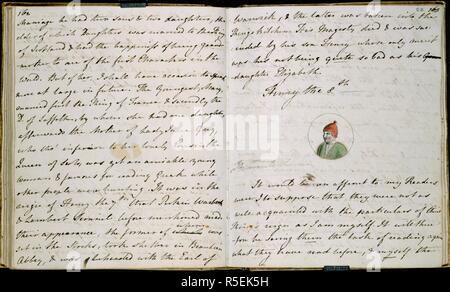 162
Marriage he had two sons & two daughters, the
elder of which Daughters was married to the King
of Scotland & had the happiness of being grand-
mother to one of the first Characters in the
World. But of her, I shall have occasion to speak
more at large in future. The Youngest, Mary,
married first the King of France & secondly the
D. of Suffolk, by whom she had one daughter,
afterwards the Mother of Lady Jane Grey,
who tho' inferior to her lovely Cousin the
Queen of Scots, was yet an amiable young
woman & famous for reading Greek while
other people were hunting. It was in the
reign of Henry the 7th that Perkin Warbeck
& Lambert Simnel before mentioned made
their appearance, the former of whom was
set in the Stocks, took shelter in Beaulieu
Abbey, & was beheaded with the Earl of
163
Warwick, & the latter was taken into the
King's kitchen. His Majesty died & was suc-
ceeded by his son Henry whose only merit
was his not being quite so bad as his
daughter Elizabeth.
Henry the 8th
It would be an affront to my Readers
were I to suppose that they were not as
well acquainted with the particulars of this
King's reign as I am myself. It will there-
fore be saving them the task of reading again
what they have read before, & myself the
alamy
R5EK5H